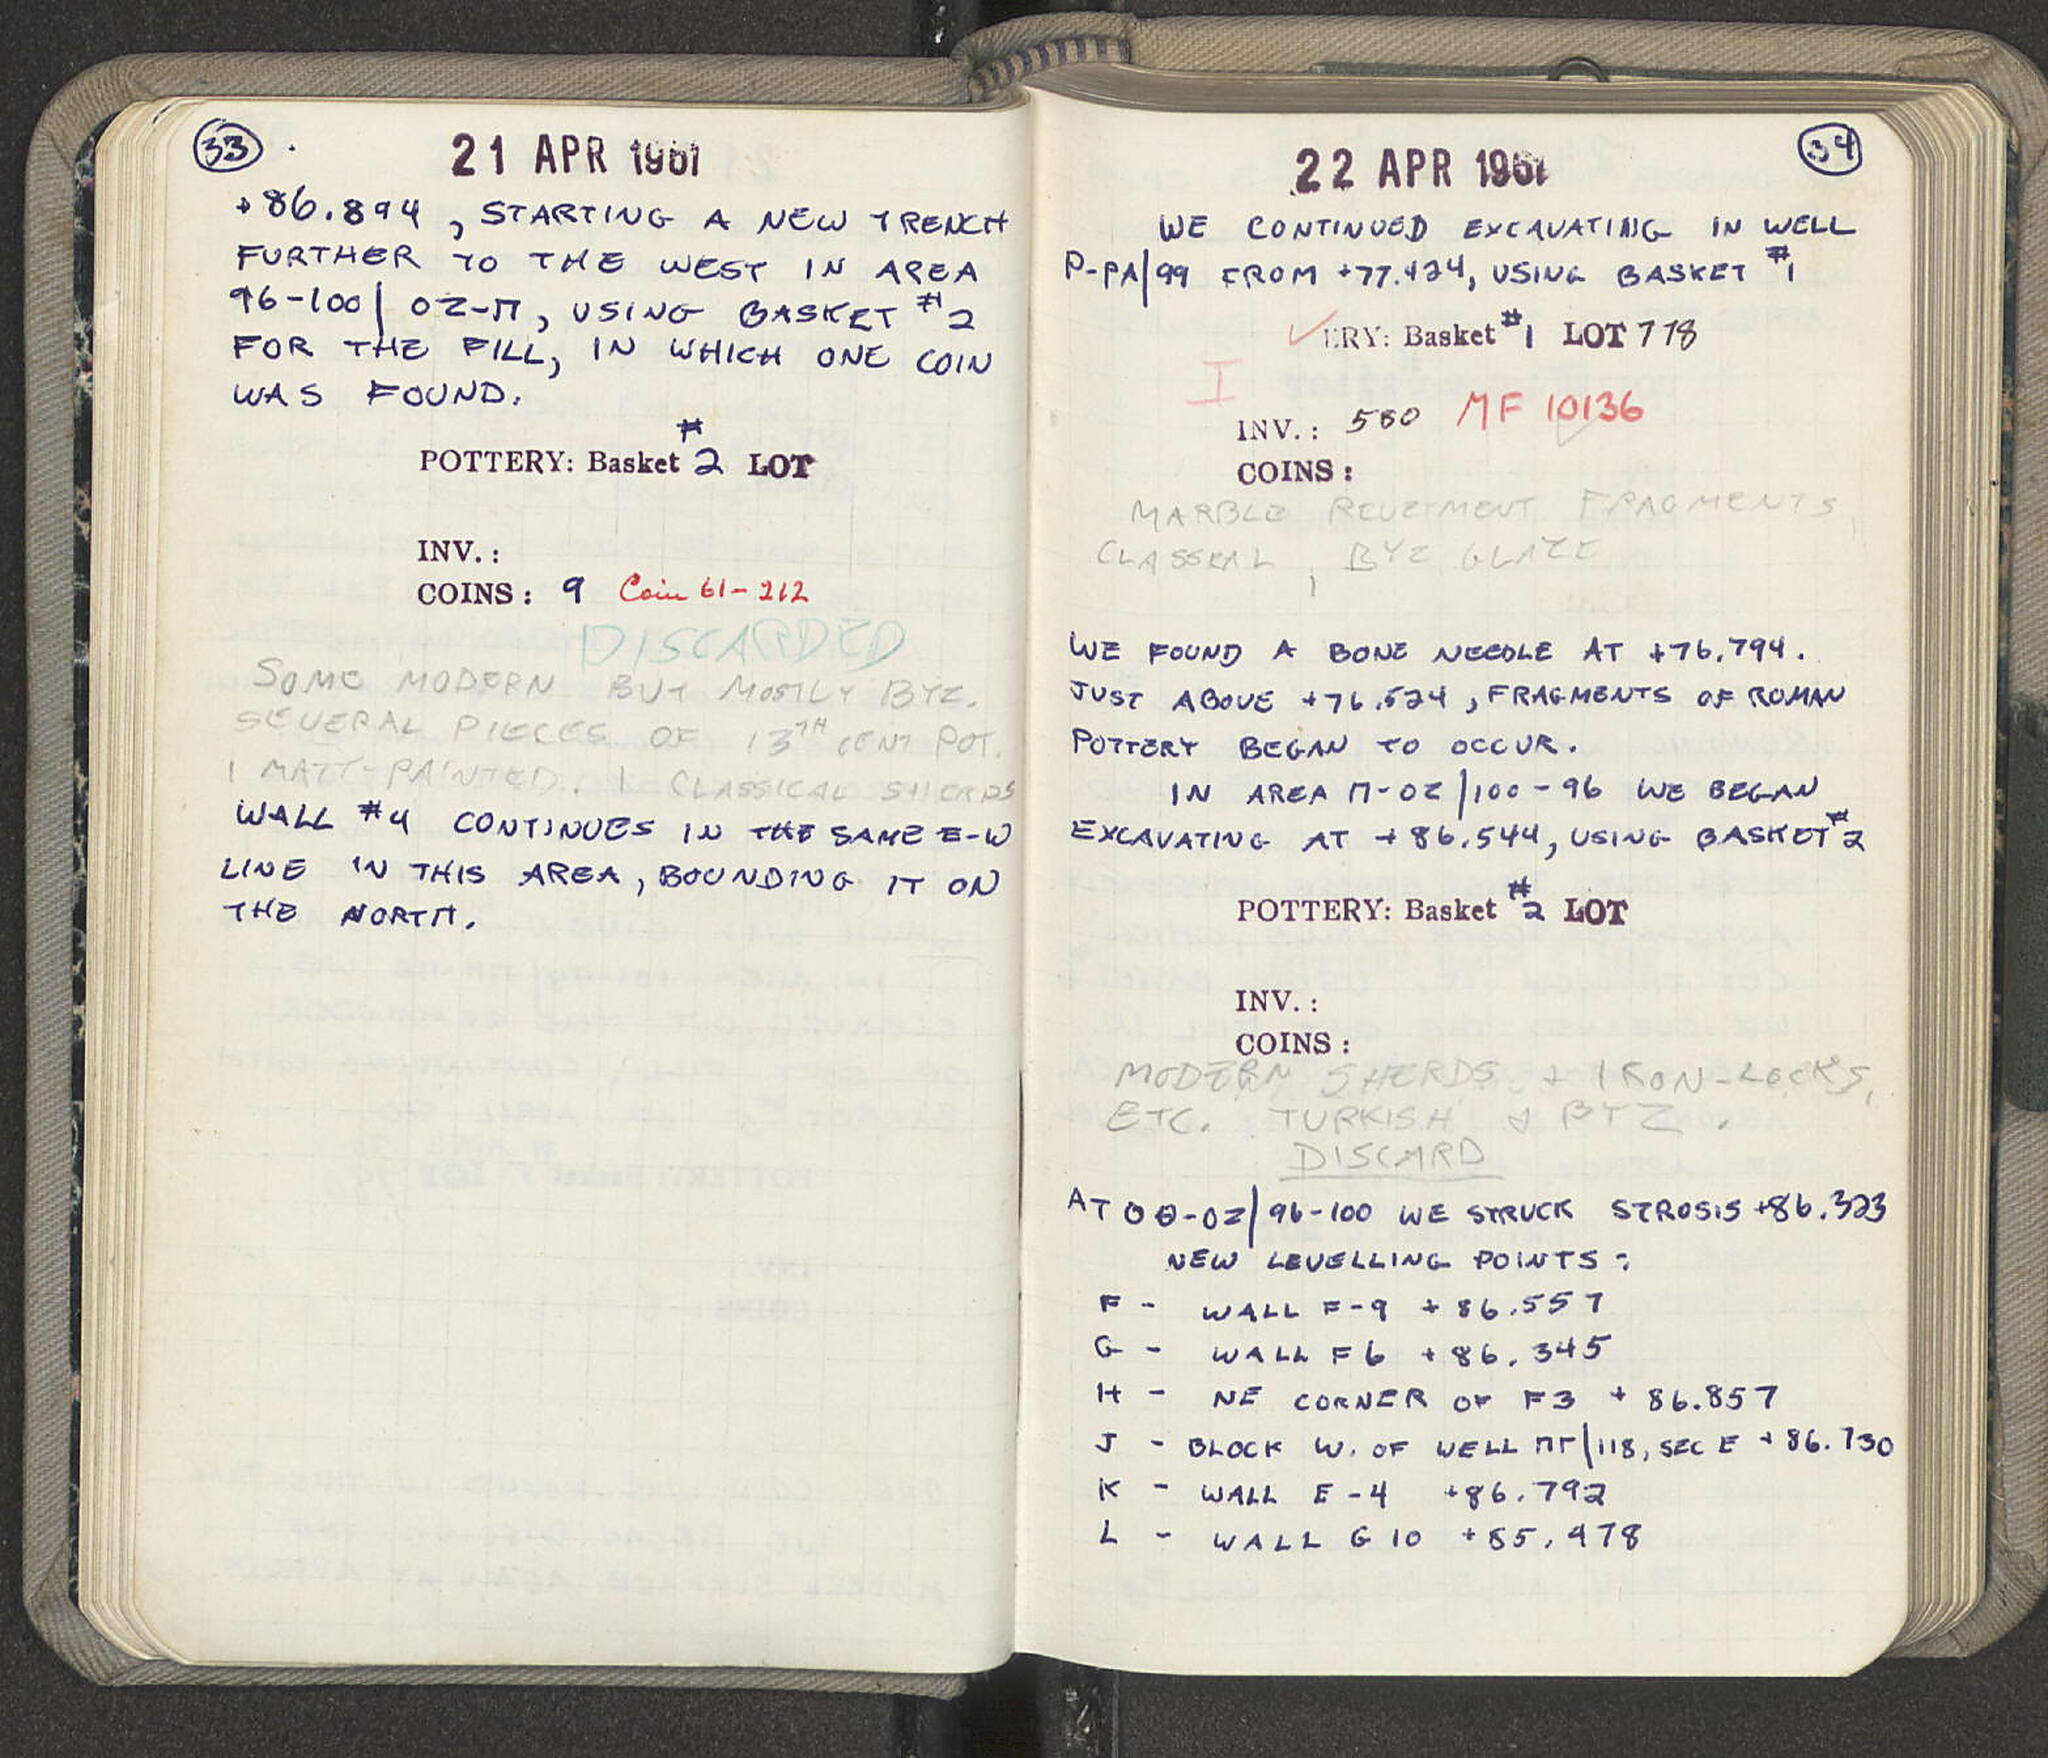 33
21 APR 1961
+86.894, STARTING A NEW TRENCH
FURTHER TO THE WEST IN AREA
96-100/OZ-Π, USING BASKET #2
FOR THE FILL, IN WHICH ONE COIN
WAS FOUND.
POTTERY: Basket #2 LOT
INV.:
COINS: 9 Coin 61-212
DISCARDED
SOME MODERN BUT MOSTLY BYZ.
SEVERAL PIECES OF 13TH CENT POT.
1 MATT-PAINTED. 1 CLASSICAL SHERDS
WALL #4 CONTINUES IN THE SAME E-W
LINE IN THIS AREA, BOUNDING IT ON
THE NORTH.
34
22 APR 1961
WE CONTINUED EXCAVATING IN WELL
P-PA/99 FROM +77.424, USING BASKET #1
ERY: Basket #1 LOT 778
I
INV.: 580 MF 10136
COINS:
MARBLE REVETMENT FRAGMENTS,
CLASSICAL, BYZ GLAZE
WE FOUND A BONE NEEDLE AT +76.794.
JUST ABOVE +76.524, FRAGMENTS OF ROMAN
POTTERY BEGAN TO OCCUR.
IN AREA Π-OZ/100-96 WE BEGAN
EXCAVATING AT +86.544, USING BASKET #2
POTTERY: Basket #2 LOT
INV.:
COINS:
MODERN SHERDS + IRON-LOCKS,
ETC. TURKISH & BYZ.
DISCARD
AT OΘ-OZ/96-100 WE STRUCK STROSIS +86.323
NEW LEVELLING POINTS:
F - WALL F-9 +86.557
G - WALL F6 +86.345
H - NE CORNER OF F3 +86.857
J - BLOCK W. OF WELL ΠΓ/118, SEC E +86.730
K - WALL E-4 +86.792
L - WALL G10 +85.478